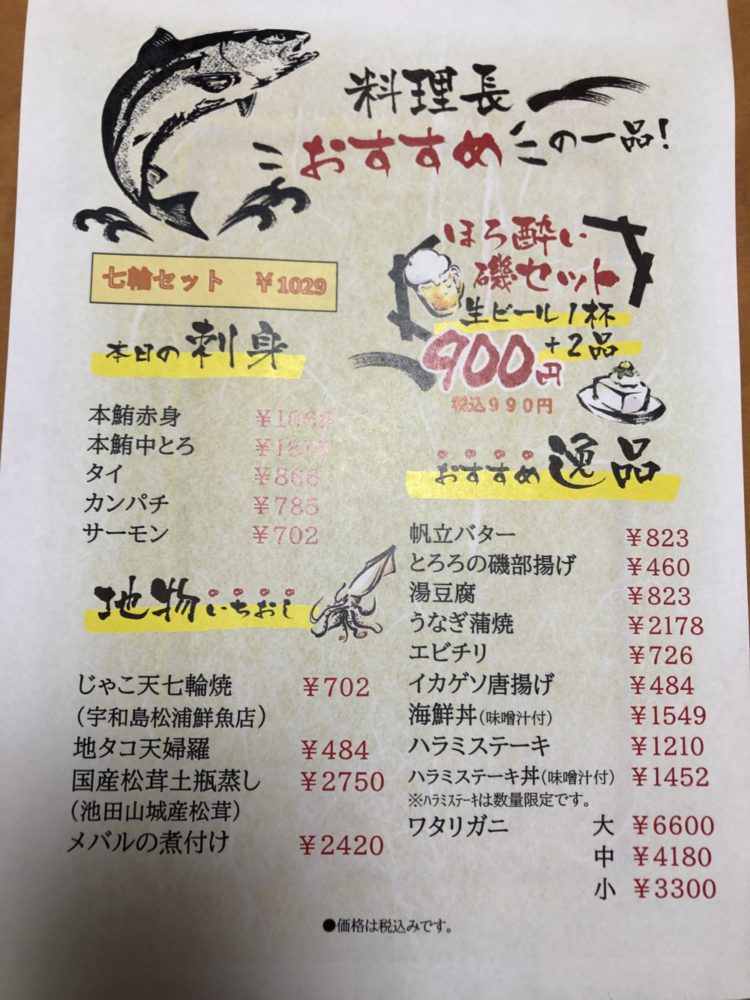 料理長
おすすめの一品!
七輪セット ¥1029
ほろ酔い
磯セット
生ビール1杯
+2品
900円
税込990円
本日の刺身
本鮪赤身
本鮪中とろ
タイ ¥866
カンパチ ¥785
サーモン ¥702
地物いちおし
じゃこ天七輪焼 ¥702
(宇和島松浦鮮魚店)
地タコ天婦羅 ¥484
国産松茸土瓶蒸し ¥2750
(池田山城産松茸)
メバルの煮付け ¥2420
おすすめ逸品
帆立バター ¥823
とろろの磯部揚げ ¥460
湯豆腐 ¥823
うなぎ蒲焼 ¥2178
エビチリ ¥726
イカゲソ唐揚げ ¥484
海鮮丼(味噌汁付) ¥1549
ハラミステーキ ¥1210
ハラミステーキ丼(味噌汁付) ¥1452
※ハラミステーキは数量限定です。
ワタリガニ 大 ¥6600
中 ¥4180
小 ¥3300
●価格は税込みです。